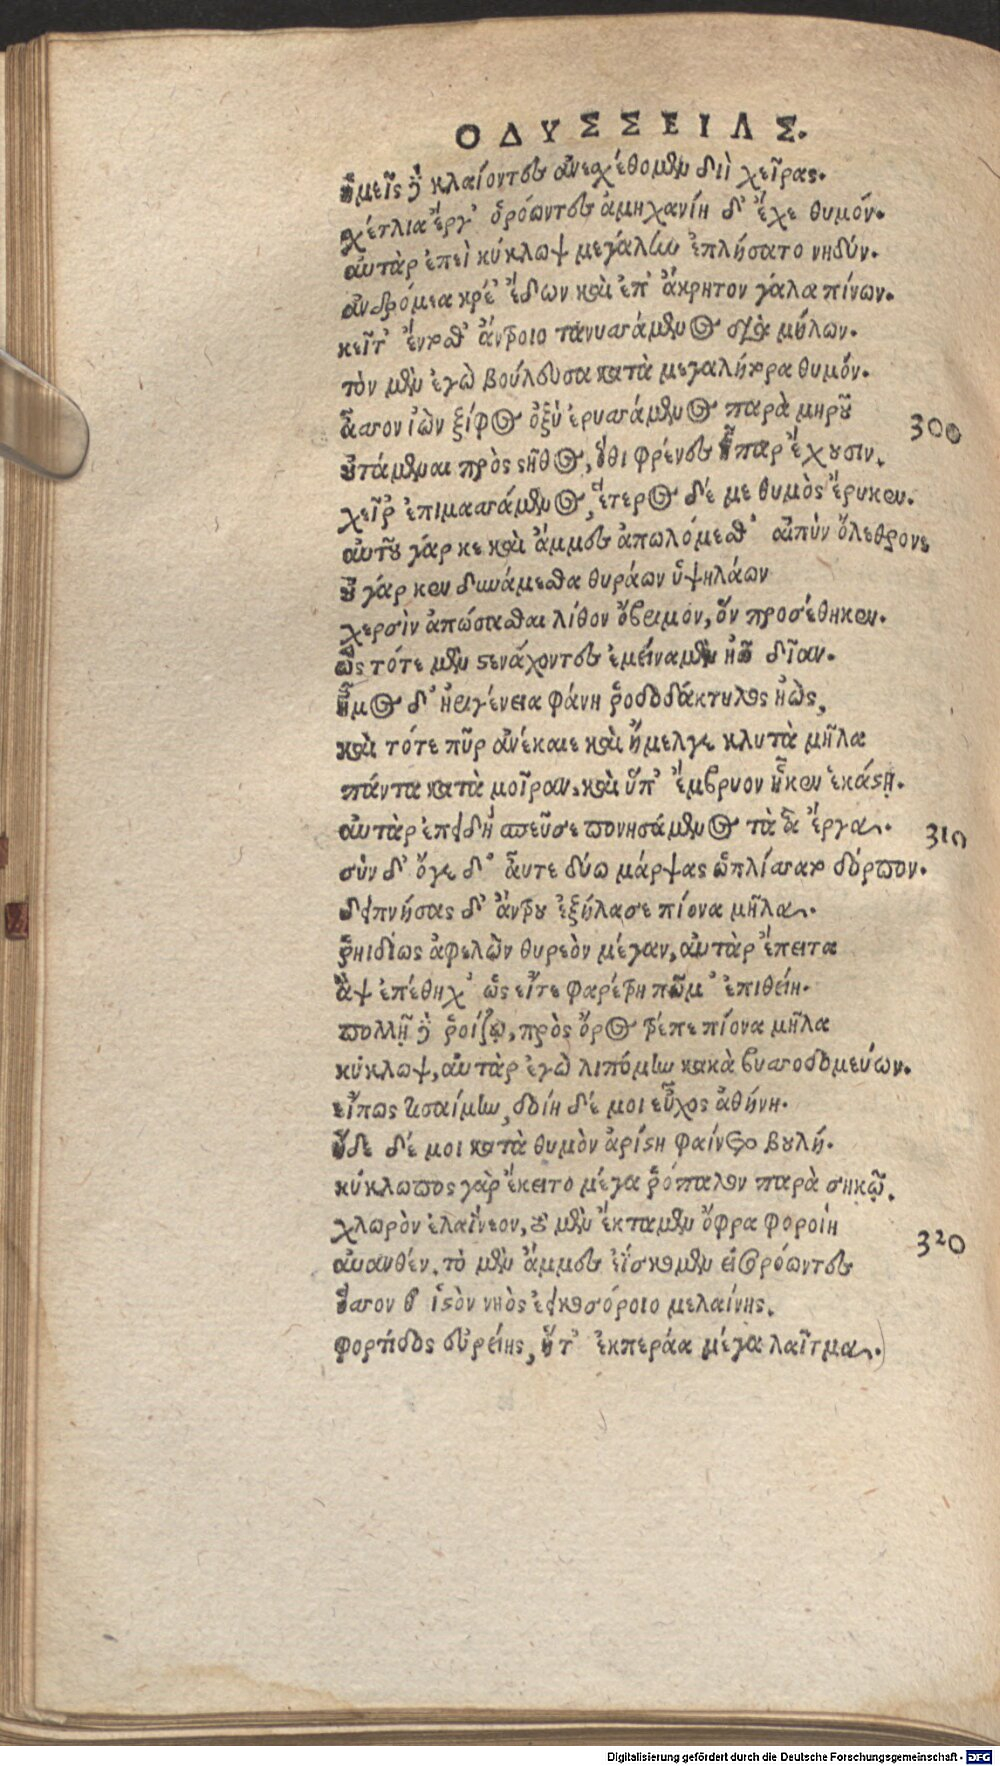 ΟΔΥΣΣΕΙΑΣ.
ἡμεῖς δὲ κλαίοντες ἀνεσχέθομεν διὶ χεῖρας.
σχέτλια ἔργ' ὁρόωντες ἀμηχανίη δ' ἔχε θυμόν.
αὐτὰρ ἐπεὶ κύκλωψ μεγάλην ἐπλήσατο νηδύν.
ἀνδρόμεα κρέ' ἔδων καὶ ἐπ' ἄκρητον γάλα πίνων.
κεῖτ' ἔντοσθ' ἄντροιο τανυσσάμενος διὰ μήλων.
τὸν μὲν ἐγὼ βούλευσα κατὰ μεγαλήτορα θυμόν.
ἆσσον ἰὼν ξίφος ὀξὺ ἐρυσσάμενος παρὰ μηροῦ
300
οὐτάμεναι πρὸς στῆθος, ὅθι φρένες ἧπαρ ἔχουσιν.
χεῖρ' ἐπιμασσάμενος, ἕτερος δέ με θυμὸς ἔρυκεν.
αὐτοῦ γάρ κε καὶ ἄμμες ἀπωλόμεθ' αἰπὺν ὄλεθρον.
οὐ γάρ κεν δυνάμεσθα θυράων ὑψηλάων
χερσὶν ἀπώσασθαι λίθον ὄβριμον, ὃν προσέθηκεν.
ὣς τότε μὲν στενάχοντες ἐμείναμεν ἠῶ δῖαν.
ἦμος δ' ἠριγένεια φάνη ῥοδοδάκτυλος ἠὼς,
καὶ τότε πῦρ ἀνέκαιε καὶ ἤμελγε κλυτὰ μῆλα
πάντα κατὰ μοῖραν. καὶ ὑπ' ἔμβρυον ἧκεν ἑκάστῃ.
αὐτὰρ ἐπειδὴ σπεῦσε πονησάμενος τὰ ἃ ἔργα.
310
σὺν δ' ὅγε δ' αὖτε δύω μάρψας ὡπλίσσατο δόρπον.
δειπνήσας δ' ἄντρου ἐξήλασε πίονα μῆλα.
ῥηιδίως ἀφελὼν θυρεὸν μέγαν, αὐτὰρ ἔπειτα
ἂψ ἐπέθηχ' ὡς εἴτε φαρέτρη πῶμ' ἐπιθείη.
πολλῇ δὲ ῥοίζῳ, πρὸς ὄρος τρέπε πίονα μῆλα
κύκλωψ, αὐτὰρ ἐγὼ λιπόμην κακὰ βυσσοδομεύων.
εἴπως τισαίμην, δοίη δέ μοι εὖχος ἀθήνη.
ἥδε δέ μοι κατὰ θυμὸν ἀρίστη φαίνετο βουλή.
κύκλωπος γὰρ ἔκειτο μέγα ῥόπαλον παρὰ σηκῷ.
χλωρὸν ἐλαΐνεον, τὸ μὲν ἔκταμεν ὄφρα φοροίη
320
αὐανθέν. τὸ μὲν ἄμμες ἐΐσκομεν εἰσορόωντες
ὅσσον θ' ἱστὸν νηὸς ἐεικοσόροιο μελαίνης.
φορτίδος εὐρείης, ἥτ' ἐκπεράα μέγα λαῖτμα.
Digitalisierung gefördert durch die Deutsche Forschungsgemeinschaft - DFG